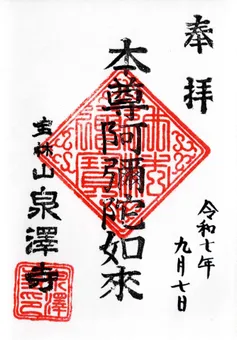 奉拝
令和七年
九月七日
本尊阿彌陀如來
宝林山泉澤寺